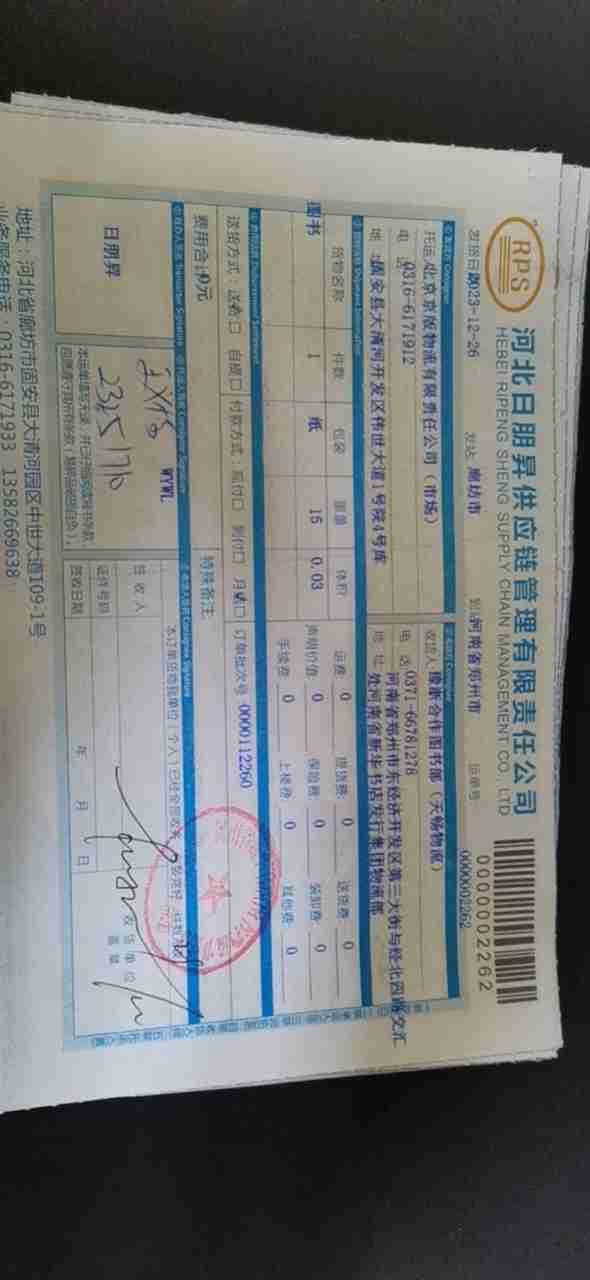 RPS
河北日朋昇供应链管理有限责任公司
HEBEI RIPENG SHENG SUPPLY CHAIN MANAGEMENT CO., LTD
0000002262
发货日 2023-12-26 发站 廊坊市 到 河南省郑州市 运单号 0000002262
托运 北京京版物流有限责任公司（市场）
电 0316-6171912
地 固安县大清河开发区伟世大道1号院4号库
收货人 豫浙合作图书部（天畅物流）
电 话 0371-66781278
地 址 河南省郑州市东经济开发区第三大街与经北四路交汇
处河南省新华书店发行集团物流部
货物名称 件数 包装 重量 体积
图书 1 纸 15 0.03
运费 0 提货费: 0 送货费 0
声明价值: 0 保险费: 0 装卸费: 0
手续费: 0 上楼费: 0 其他费: 0
送货方式: 自提口 付款方式: 现付口 到付口 订单批次号 0000112260
费用合计 0元 特殊备注:
日朋昇
WYWL
签 收 人
证件号码
签收日期 年 月 日
地址：河北省廊坊市固安县大清河园区中世大道109-1号
业务服务电话：0316-6171933 13582669638